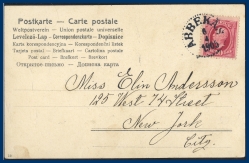 Postkarte — Carte postale
Weltpostverein — Union postale universelle
Levelezö-Lap — Correspondenzkarte — Dopisnice
Karta korespondencyjna — Korespondenční lístek
Tarjeta postal — Briefkaart — Cartolina postale
Post card — Brefkort — Brevkort
Открытое письмо — Дописна карта
ARBEKA
Miss Elin Anderssson
125 West 74 Street
New York
City.